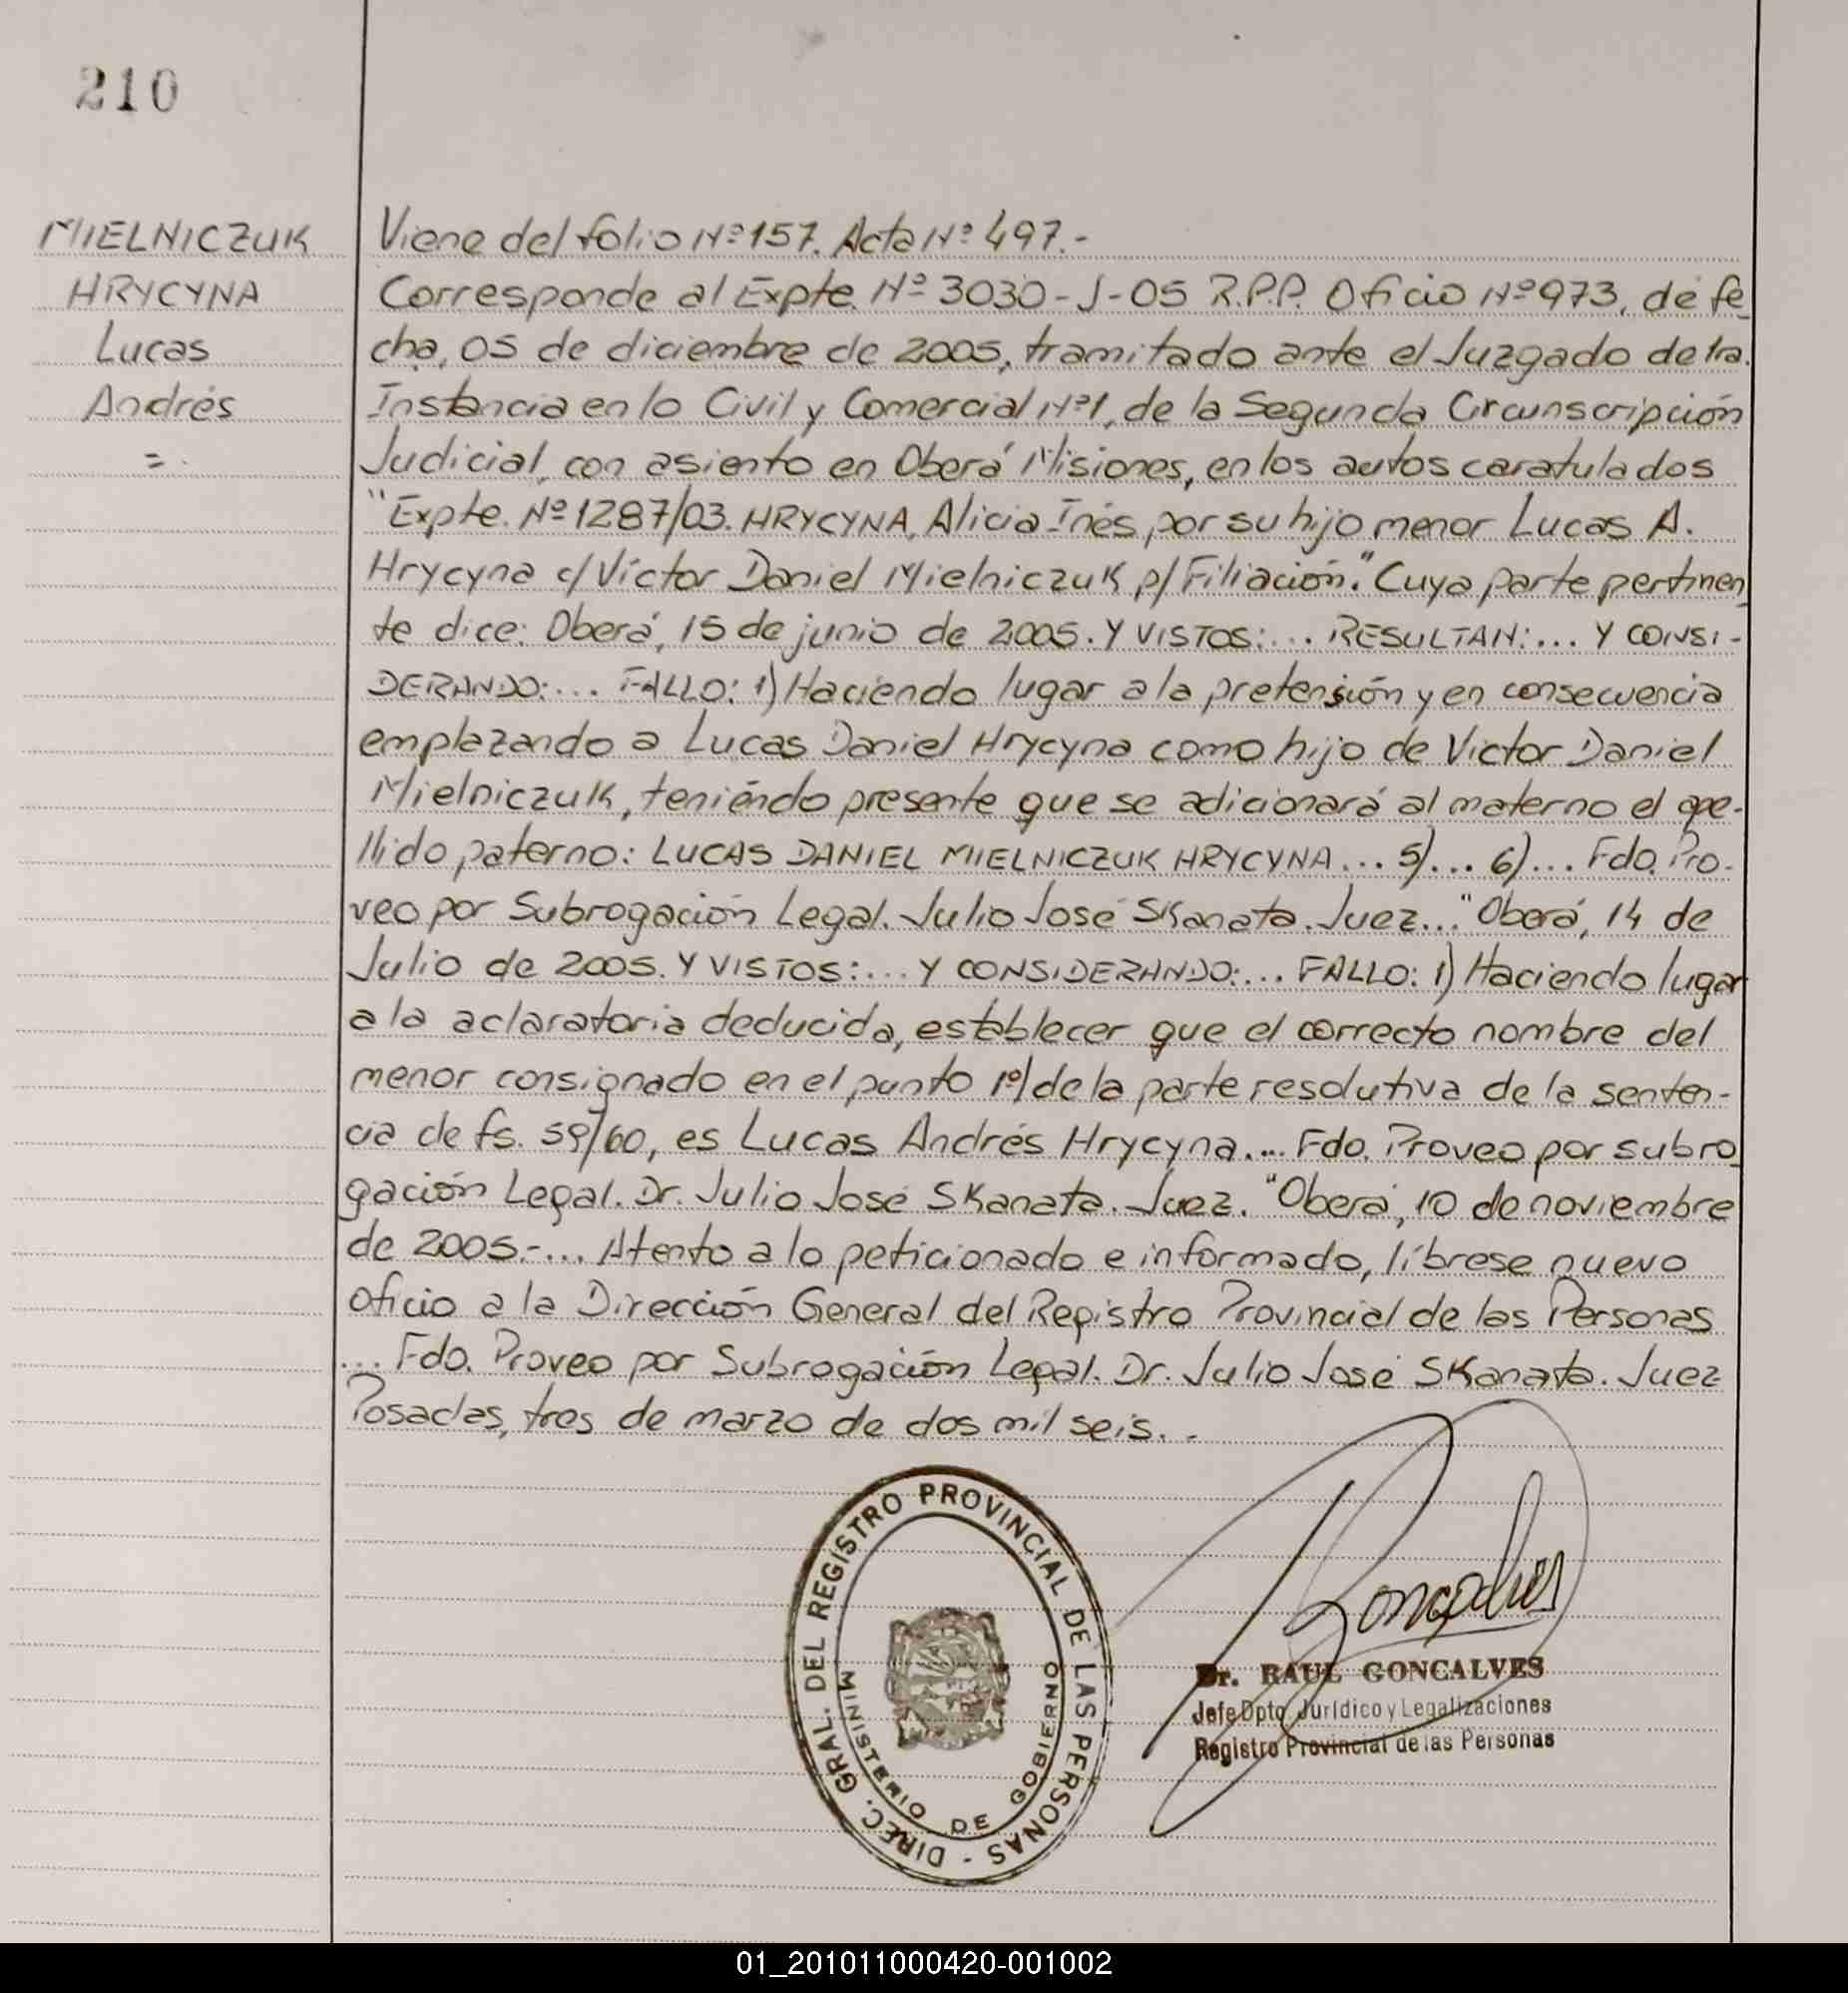 210
MIELNICZUK
HRYCYNA
Lucas
Andrés
=.
Viene del folio Nº 157. Acta Nº 497.-
Corresponde al Expte. Nº 3030-J-05 R.P.P. Oficio Nº 973, de fe_
cha, 05 de diciembre de 2005, tramitado ante el Juzgado de 1ra.
Instancia en lo Civil y Comercial Nº 1, de la Segunda Circunscripción
Judicial, con asiento en Oberá Misiones, en los autos caratulados
"Expte. Nº 1287/03. HRYCYNA, Alicia Inés, por su hijo menor Lucas A.
Hrycyna c/ Víctor Daniel Mielniczuk p/ Filiación." Cuya parte pertinen_
te dice: Oberá, 15 de junio de 2005. Y VISTOS:... RESULTAN:... Y CONSI-
DERANDO:... FALLO: 1) Haciendo lugar a la pretensión y en consecuencia
emplazando a Lucas Daniel Hrycyna como hijo de Victor Daniel
Mielniczuk, teniendo presente que se adicionará al materno el ape-
llido paterno: LUCAS DANIEL MIELNICZUK HRYCYNA... 5)... 6)... Fdo. Pro-
veo por Subrogación Legal. Julio José SKanata. Juez..." Oberá, 14 de
Julio de 2005. Y VISTOS:... Y CONSIDERANDO:... FALLO: 1) Haciendo lugar
a la aclaratoria deducida, establecer que el correcto nombre del
menor consignado en el punto 1º/ de la parte resolutiva de la senten-
cia de fs. 59/60, es Lucas Andrés Hrycyna.... Fdo. Proveo por subro_
gación Legal. Dr. Julio José SKanata. Juez. "Oberá, 10 de noviembre
de 2005.-... Atento a lo peticionado e informado, líbrese nuevo
oficio a la Dirección General del Registro Provincial de las Personas
... Fdo. Proveo por Subrogación Legal. Dr. Julio José SKanata. Juez
Posadas, tres de marzo de dos mil seis. -
DIREC. GRAL. DEL REGISTRO PROVINCIAL DE LAS PERSONAS -
MINISTERIO DE GOBIERNO
Goncalves
Dr. RAUL GONCALVES
Jefe Dpto. Jurídico y Legalizaciones
Registro Provincial de las Personas
01_201011000420-001002